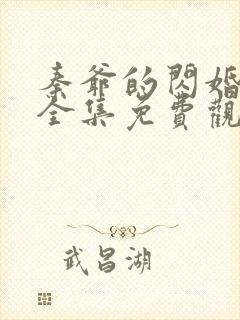 秦爷的闪婚
全集免費觀
武昌湖